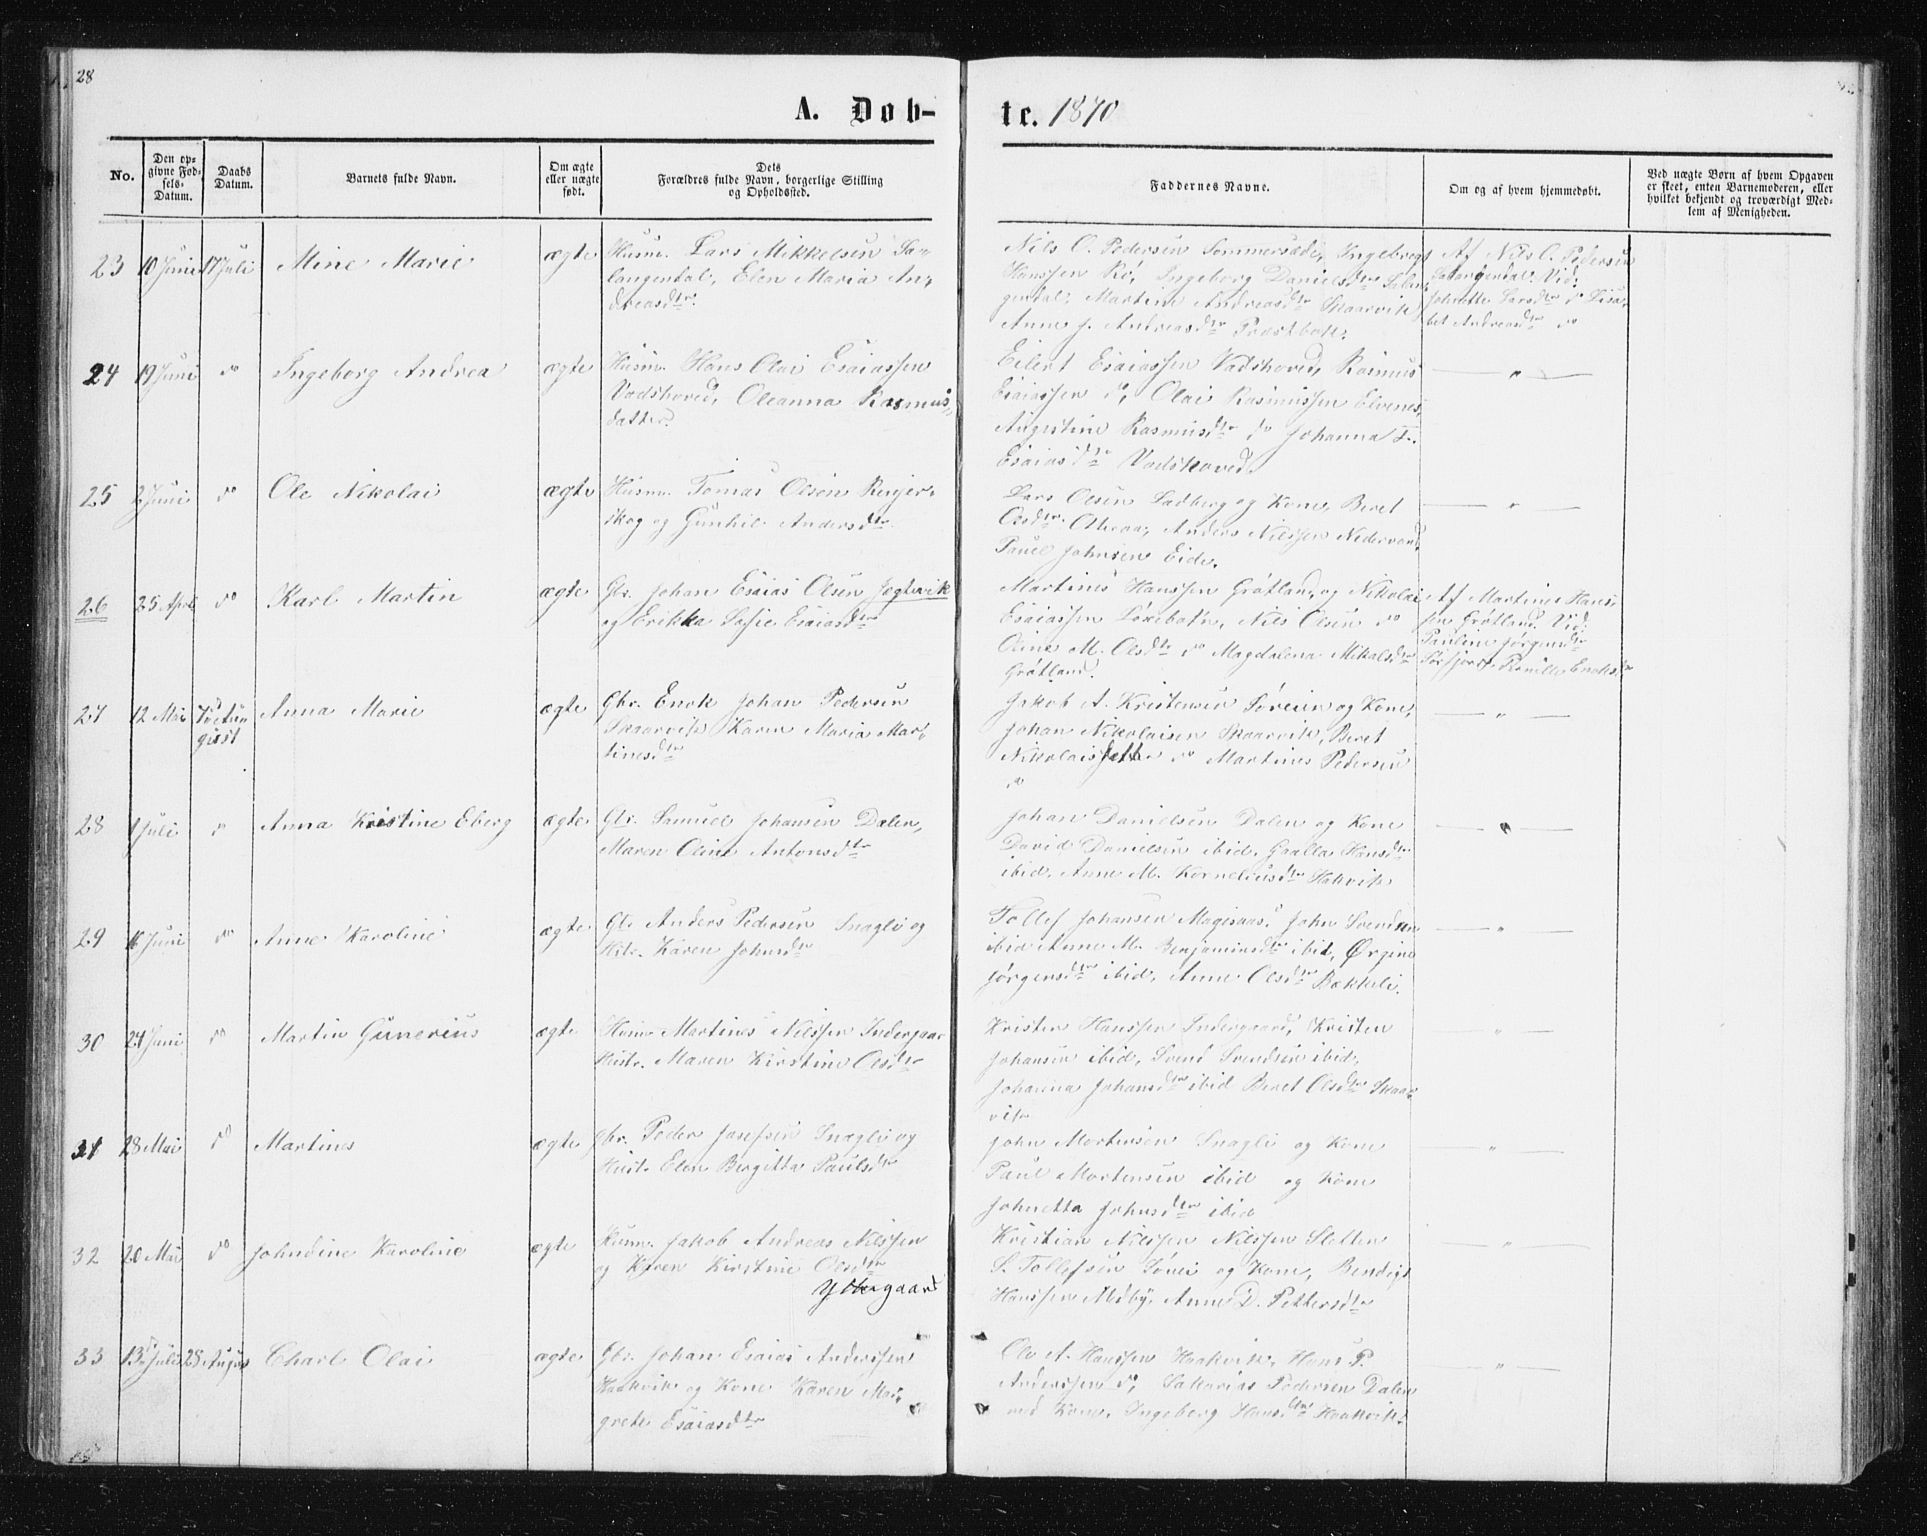 28
A. Døb-
te. 1870
No.
Den op-
givne Fød-
sels-
Datum.
Daabs
Datum.
Barnets fulde Navn.
Om ægte
eller uægte
født.
Dets
Forældres fulde Navn, borgerlige Stilling
og Opholdssted.
Faddernes Navne.
Om og af hvem hjemmedøbt.
Ved uægte Børn af hvem Opgaven
er skeet, enten Barnemoderen, eller
hvilket bekjendt og troværdigt Med-
lem af Menigheden.
23 10 Juni 17 Juli Mine Marie ægte
Husm. Lars Mikkelsen Sa-
langendal, Elen Maria An-
dreasdtr.
Nils O. Pedersen Sommersæde, Ingebregt
Hanssen Rø, Ingeborg Danielsdtr Salan-
gendal, Martine Andreasdtr Skaarvik,
Anne J. Andreasdtr Præstbak.
Af Nils O. Pedersen
Salangendal. Vid:
Johnette Larsdtr do Lisa-
bet Andreasdtr do
24 19 Juni do Ingeborg Andrea ægte
Husm. Hans Olai Esaiassen
Vadshoved, Oleanna Rasmus-
datter.
Eilert Esaiassen Vadshoved, Rasmus
Esaiassen do, Olai Rasmussen Elvenes,
Augustine Rasmusdtr do Johanna F.
Esaiasdtr Vadshoved.
— " —
25 2 Juni do Ole Nikolai ægte
Husm. Tomas Olsen Renjer-
skog og Gunhil Andersdtr
Lars Olsen Ladberg og Kone, Beret
Olsdtr, Anders Nilssen Nedervand,
Paul Johnsen Eide.
— " —
26 25 April do Karl Martin ægte
Gbr. Johan Esaias Olsen Jegtevik
og Erikka Sofie Esaiasdtr
Martines Hanssen Grøtland, og Nikolai
Esaiassen Løxebotn, Nils Olsen do
Oline M. Olsdtr do Magdalena Mikalsdtr
Grøtland.
Af Martines Hans-
sen Grøtland. Vid:
Pauline Jørgensdtr
Sørfjord, Pernille Enoksdtr
27 12 Mai 7de Au-
gust
Anna Marie ægte
Gbr. Enok Johan Pedersen
Skaarvik, Karen Maria Mar-
tinesdtr
Jakob A. Kristensen Søreien og Kone,
Johan Nikolaisen Skaarvik, Beret
Nikolaisdatter do Martines Pedersen
do
— " —
28 1 Juli do Anna Kristine Eberg ægte
Gbr. Samuel Johansen Dalen,
Maren Oline Antonsdtr
Johan Danielsen Dalen og Kone
David Danielsen ibid. Gaalla Hansdtr
ibid. Anne M. Korneliusdtr Hakvik
— " —
29 16 Juni do Anne Karoline ægte
Gbr Anders Pedersen Snagli og
Hstr. Karen Johnsdtr
Tollef Johansen Magisaas. John Svendsen
ibid Anne M. Benjaminsdtr ibid, Ørgine
Jørgensdtr ibid, Anne Olsdtr Bækkeli.
— " —
30 24 Juni do Martin Gunerius ægte
Husm Martines Nilssen Indergaar
Hustr. Maren Kirstine Olsdtr
Kristen Hanssen Indergaard, Kristen
Johansen ibid, Svend Svendsen ibid,
Johanna Johansdtr ibid Beret Olsdtr Skaar-
vik
— " —
31 28 Mai do Martines ægte
Gbr. Peder Josefsen Snagli og
Hust. Elen Bergitta Paulsdtr
John Mortensen Snagli og Kone
Paul Mortensen ibid og Kone
Johnetta Johnsdtr ibid
— " —
32 20 Mai do Johndine Karoline ægte
Husm. Jakob Andreas Nilssen
og Karen Kirstine Olsdtr
Yttergaard
Kristian Nilssen Nilssen Sletten
S. Tollefsen Sørei og Kone, Bendigt
Hanssen Moby, Anne D. Pettersdtr
— " —
33 13 Juli 28 August Charl Olai ægte
Gbr. Johan Esaias Anderssen
Haakvik og Kone Karen Mar-
grete Esaiasdtr
Ole A. Hanssen Haakvik, Hans P.
Anderssen do, Sakarias Pedersen Dalen
med Kone, Ingeberg Hansdtr Haakvik.
— " —